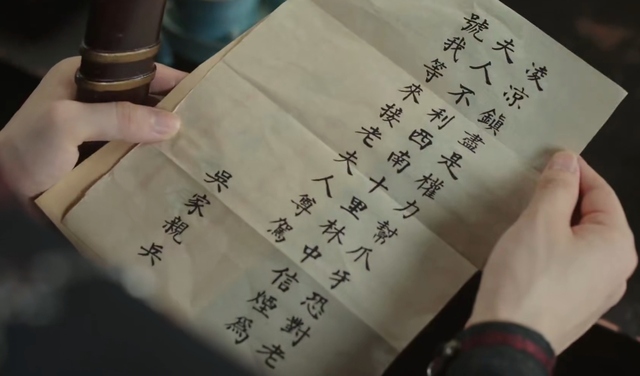 凌凉鎮盡是權力幫爪牙恐對老
夫人不利西南十里林中信煙為
號我等來接老夫人尊駕
吳家親兵